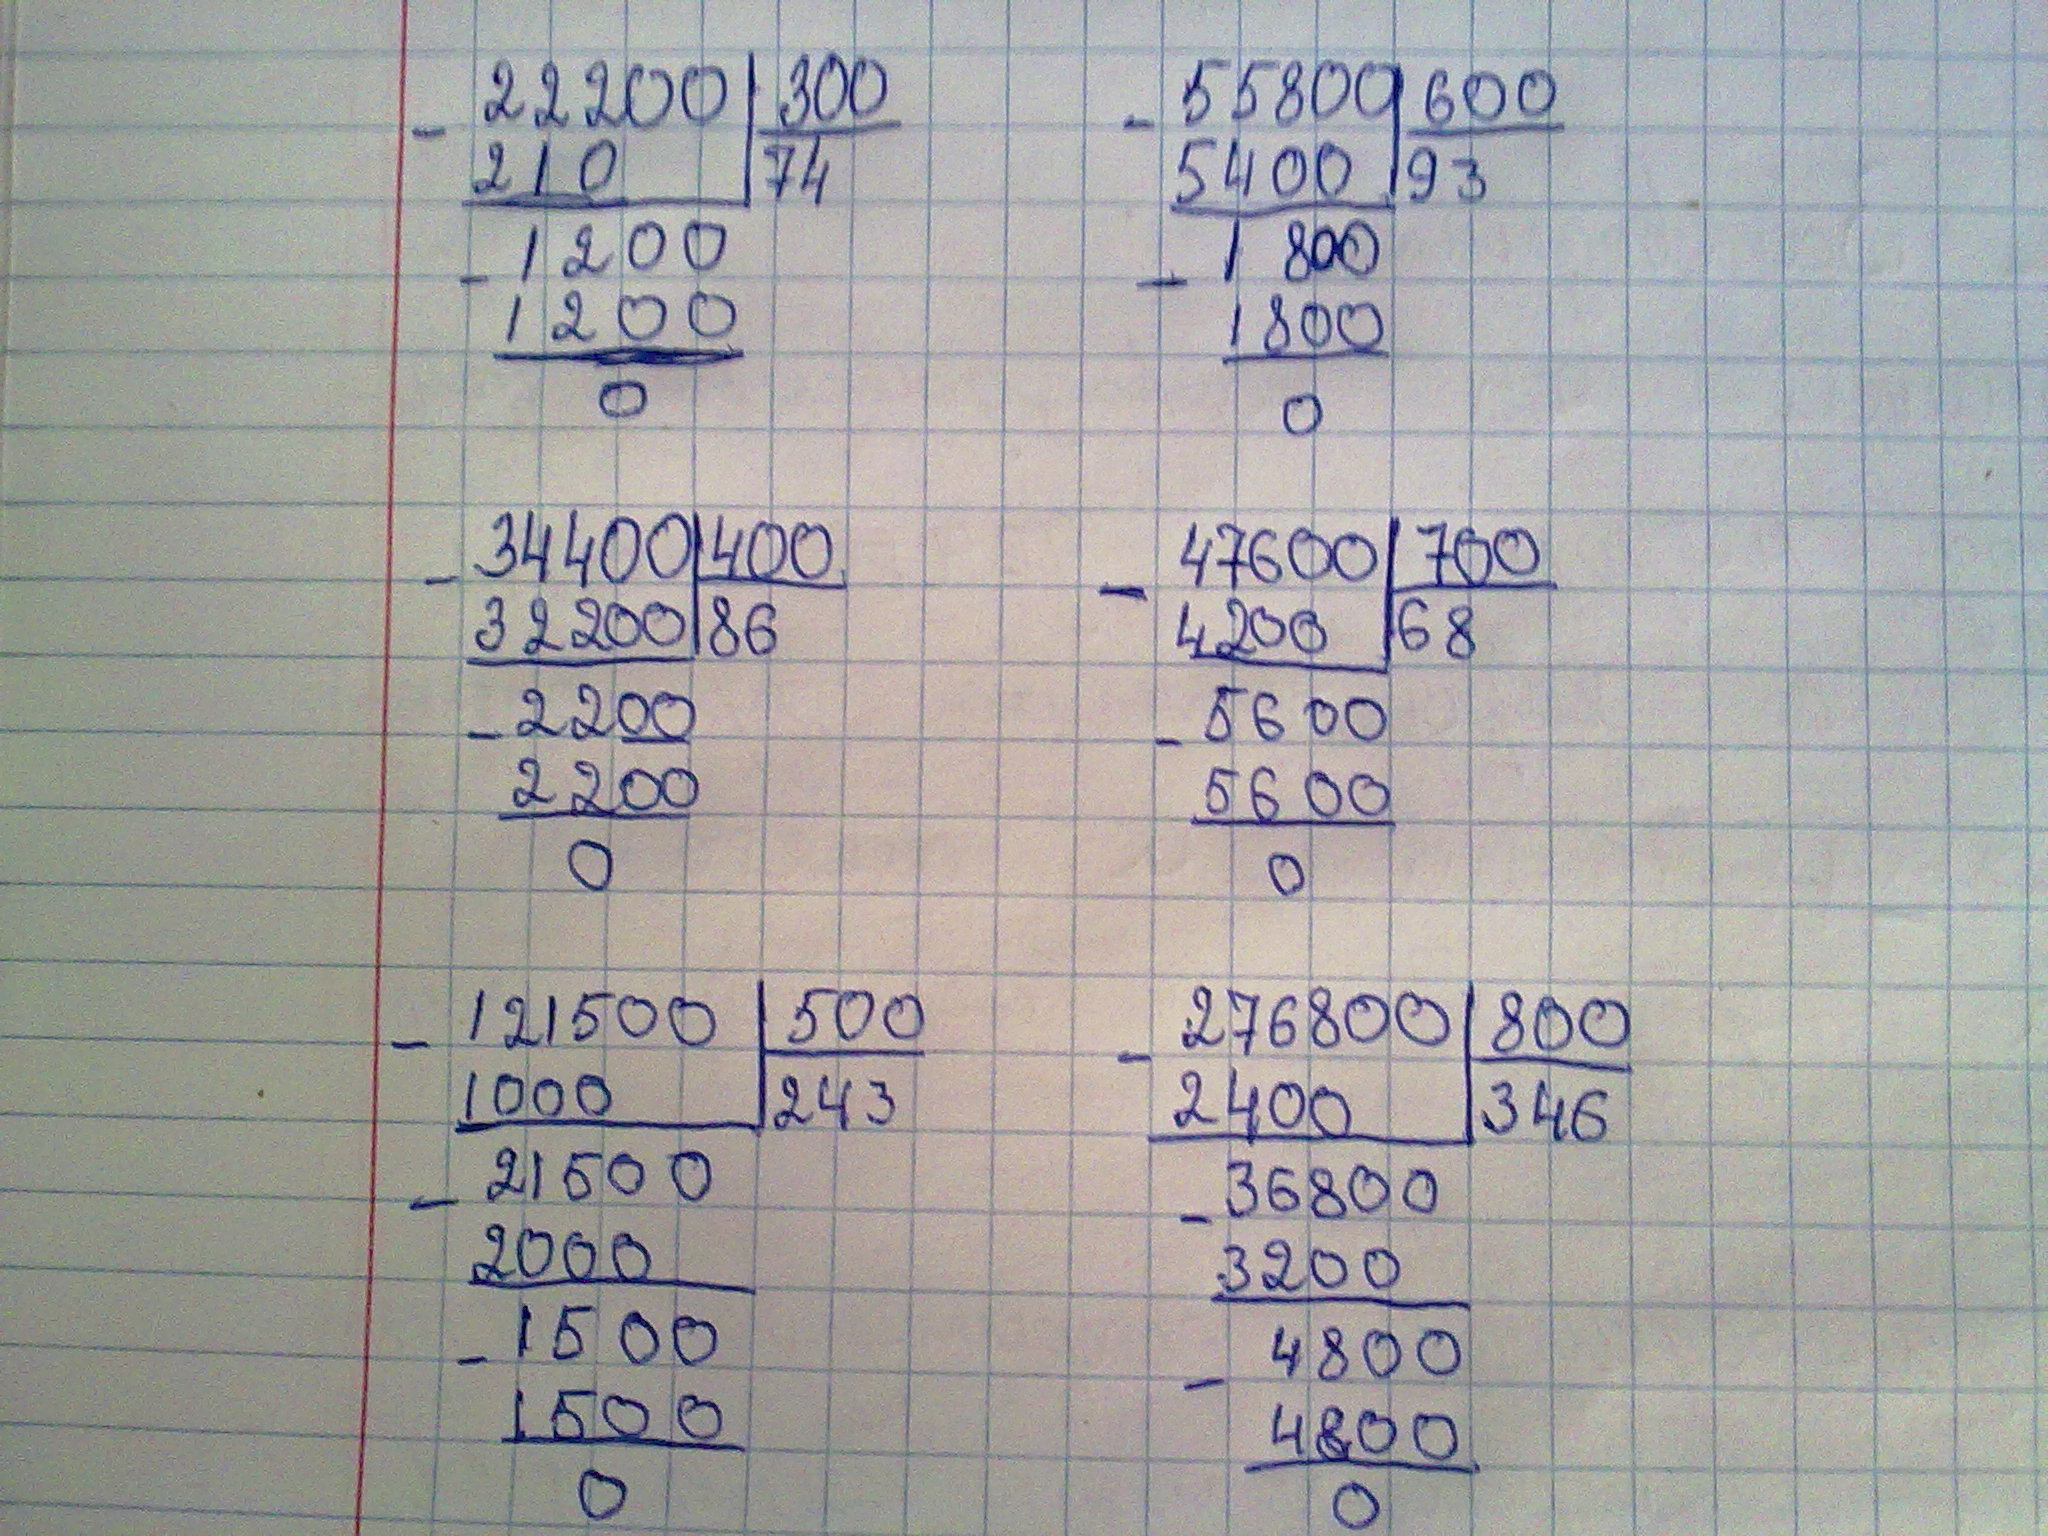 - 22200 | 300
210 | 74
- 1200
1200
0
- 55800 | 600
5400 | 93
- 1800
1800
0
- 34400 | 400
32200 | 86
- 2200
2200
0
- 47600 | 700
4200 | 68
- 5600
5600
0
- 121500 | 500
1000 | 243
- 21500
2000
- 1500
1500
0
- 276800 | 800
2400 | 346
- 36800
3200
- 4800
4800
0